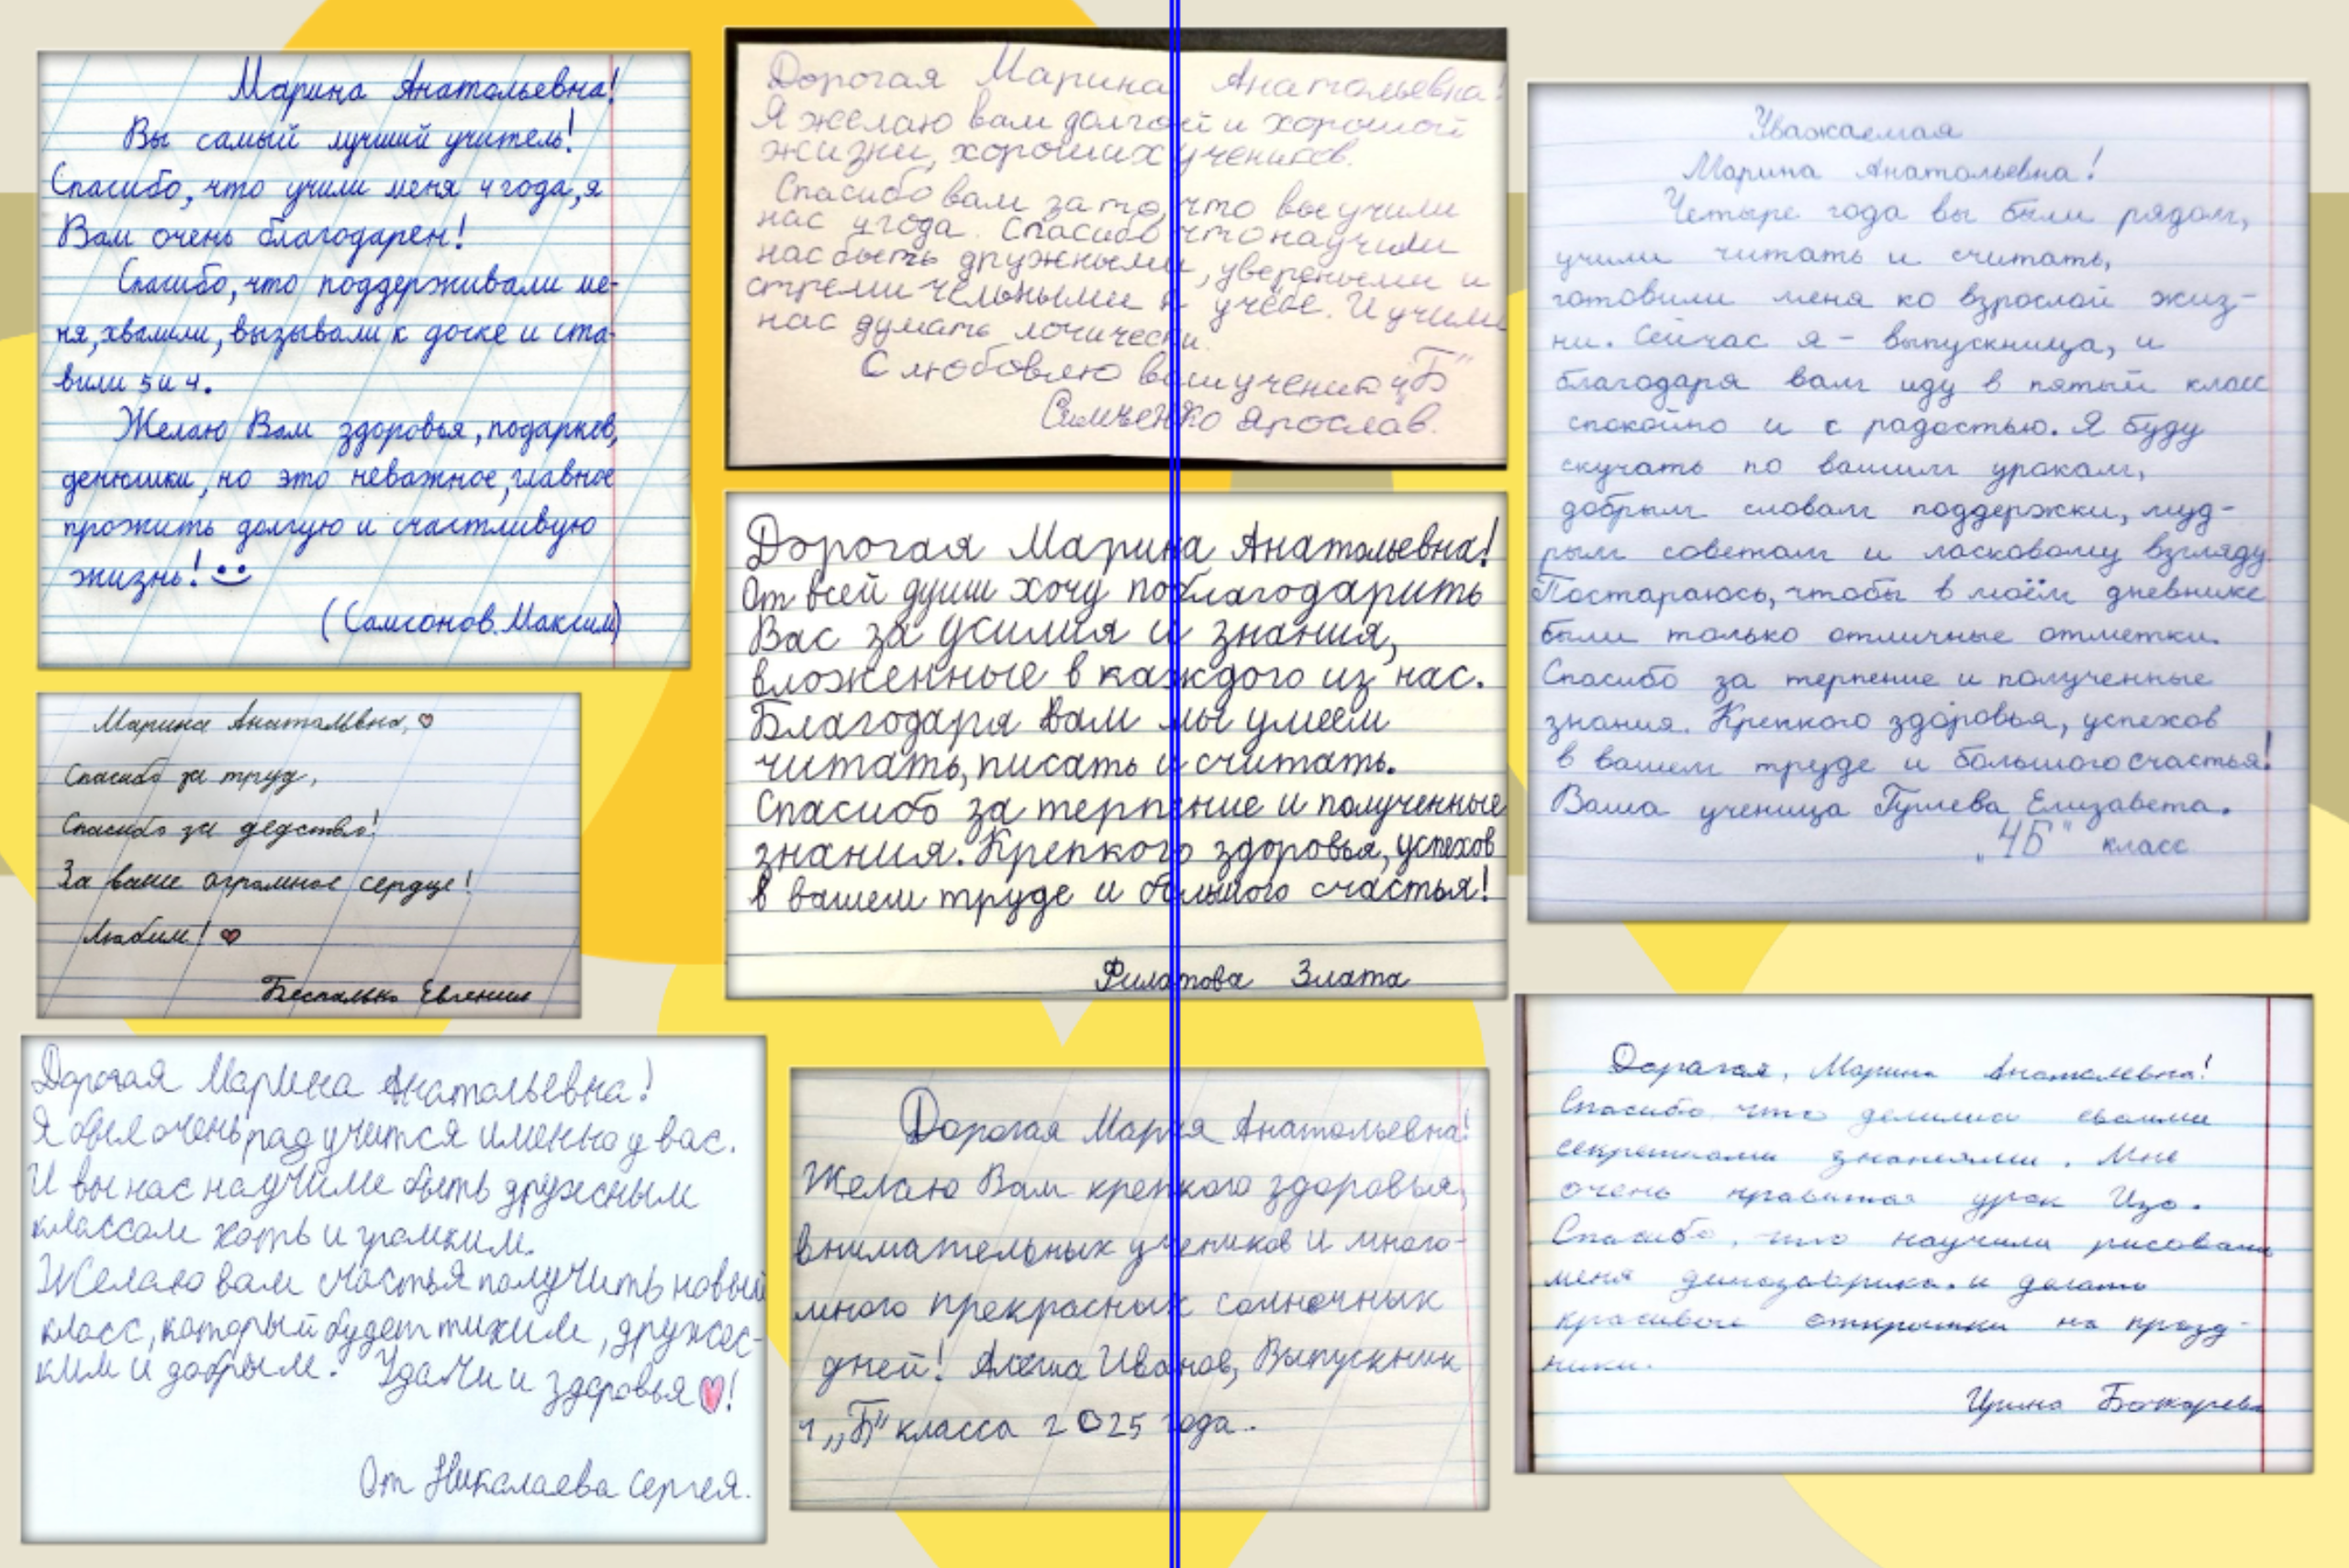 Марина Анатольевна!
Вы самый лучший учитель!
Спасибо, что учили меня 4 года, я
Вам очень благодарен!
Спасибо, что поддерживали ме-
ня, хвалили, вызывали к доске и ста-
вили 5 и 4.
Желаю Вам здоровья, подарков,
денюшки, но это неважное, главное
прожить долгую и счастливую
жизнь!
(Самсонов Максим)
Марина Анатольвна,
Спасибо за труд,
Спасибо за дедство!
За ваше огромное сердце!
Любим!
Беспалько Евгения
Дорогая Марина Анатольевна!
Я был очень рад учится именно у вас.
И вы нас научиле быть дружным
классом хоть и громким.
Желаю вам счастья получить новый
класс, который будет тихим, дружес-
ким и добрым. Удачи и здоровья!
От Николаева Сергея.
Дорогая Марина Анатольевна!
Я желаю вам долгой и хорошой
жизни, хороших учеников.
Спасибо вам за то, что вы учили
нас 4 года. Спасибо что научили
нас быть дружными, увереными и
стремительными к учёбе. И учили
нас думать логически.
С любовлю ваш ученик 4"Б"
Симченко Ярослав.
Дорогая Марина Анатольевна!
От всей души хочу поблагодарить
Вас за усилия и знания,
вложенные в каждого из нас.
Благодаря вам мы умеем
читать, писать и считать.
Спасибо за терпение и полученные
знания. Крепкого здоровья, успехов
в вашем труде и большого счастья!
Филатова Злата
Дорогая Мария Анатольевна!
Желаю Вам крепкого здоровья,
внимательных учеников и много-
много прекрасных солнечных
дней! Алёша Иванов, Выпускник
4 „Б" класса 2025 года.
Уважаемая
Марина Анатольевна!
Четыре года вы были рядом,
учили читать и считать,
готовили меня ко взрослой жиз-
ни. Сейчас я - выпускница, и
благодаря вам иду в пятый класс
спокойно и с радостью. Я буду
скучать по вашим урокам,
добрым словам поддержки, муд-
рым советам и ласковому взгляду.
Постараюсь, чтобы в моём дневнике
были только отличные отметки.
Спасибо за терпение и полученные
знания. Крепкого здоровья, успехов
в вашем труде и большого счастья!
Ваша ученица Елизавета.
„4Б" класс
Дорагая, Марина Анатольевна!
Спасибо что делились своими
секретками знаниями. Мне
очень нравится урок Изо.
Спасибо, что научили рисовать
меня динозаврика и делать
красивые открытки на празд-
ники.
Ирина